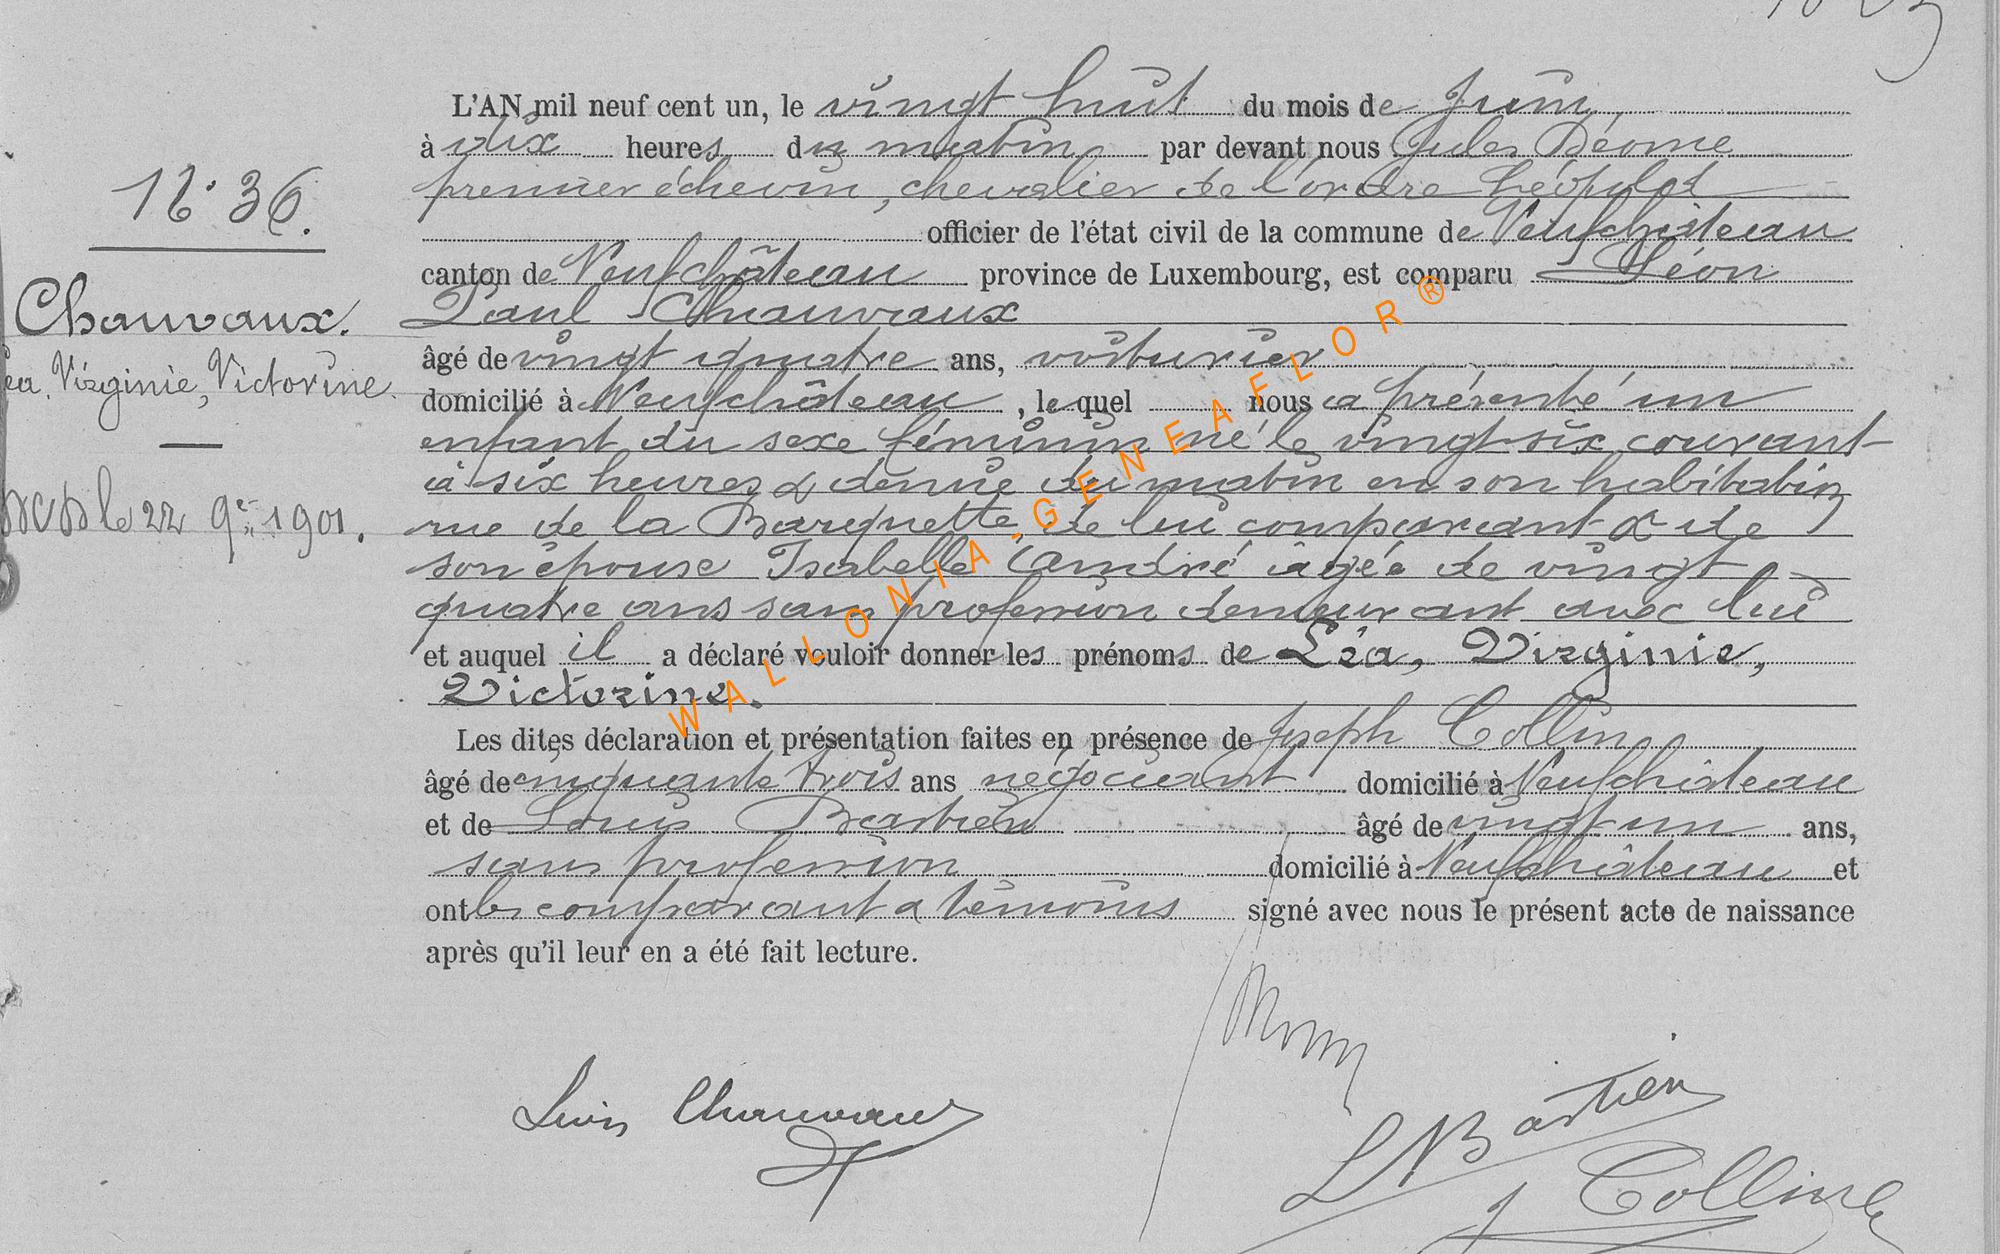 L'AN mil neuf cent un, le vingt huit du mois de Juin
à dix heures du matin par devant nous Jules Déome
premier échevin, chevalier de l'ordre Léopold
officier de l'état civil de la commune de Neufchâteau
canton de Neufchâteau province de Luxembourg, est comparu Léon
Paul Chauvaux
âgé de vingt quatre ans, voiturier
domicilié à Neufchâteau, lequel nous a présenté un
enfant du sexe féminin né le vingt-six courant
à six heures & demie du matin en son habitation
rue de la Barquette, de lui comparant & de
son épouse Isabelle André âgée de vingt
quatre ans sans profession demeurant avec lui
et auquel il a déclaré vouloir donner les prénoms de Léa, Virginie,
Victorine.
Les dites déclaration et présentation faites en présence de Joseph Collin
âgé de cinquante trois ans négociant domicilié à Neufchâteau
et de Louis Bastien âgé de vingt un ans,
sans profession domicilié à Neufchâteau et
ont les comparant & témoins signé avec nous le présent acte de naissance
après qu'il leur en a été fait lecture.
N° 36.
Chauvaux.
Virginie, Victorine.
le 22 9re 1901.
Chauvaux
L Bastien
J Collin
WALLONIA-GENEAFLOR®